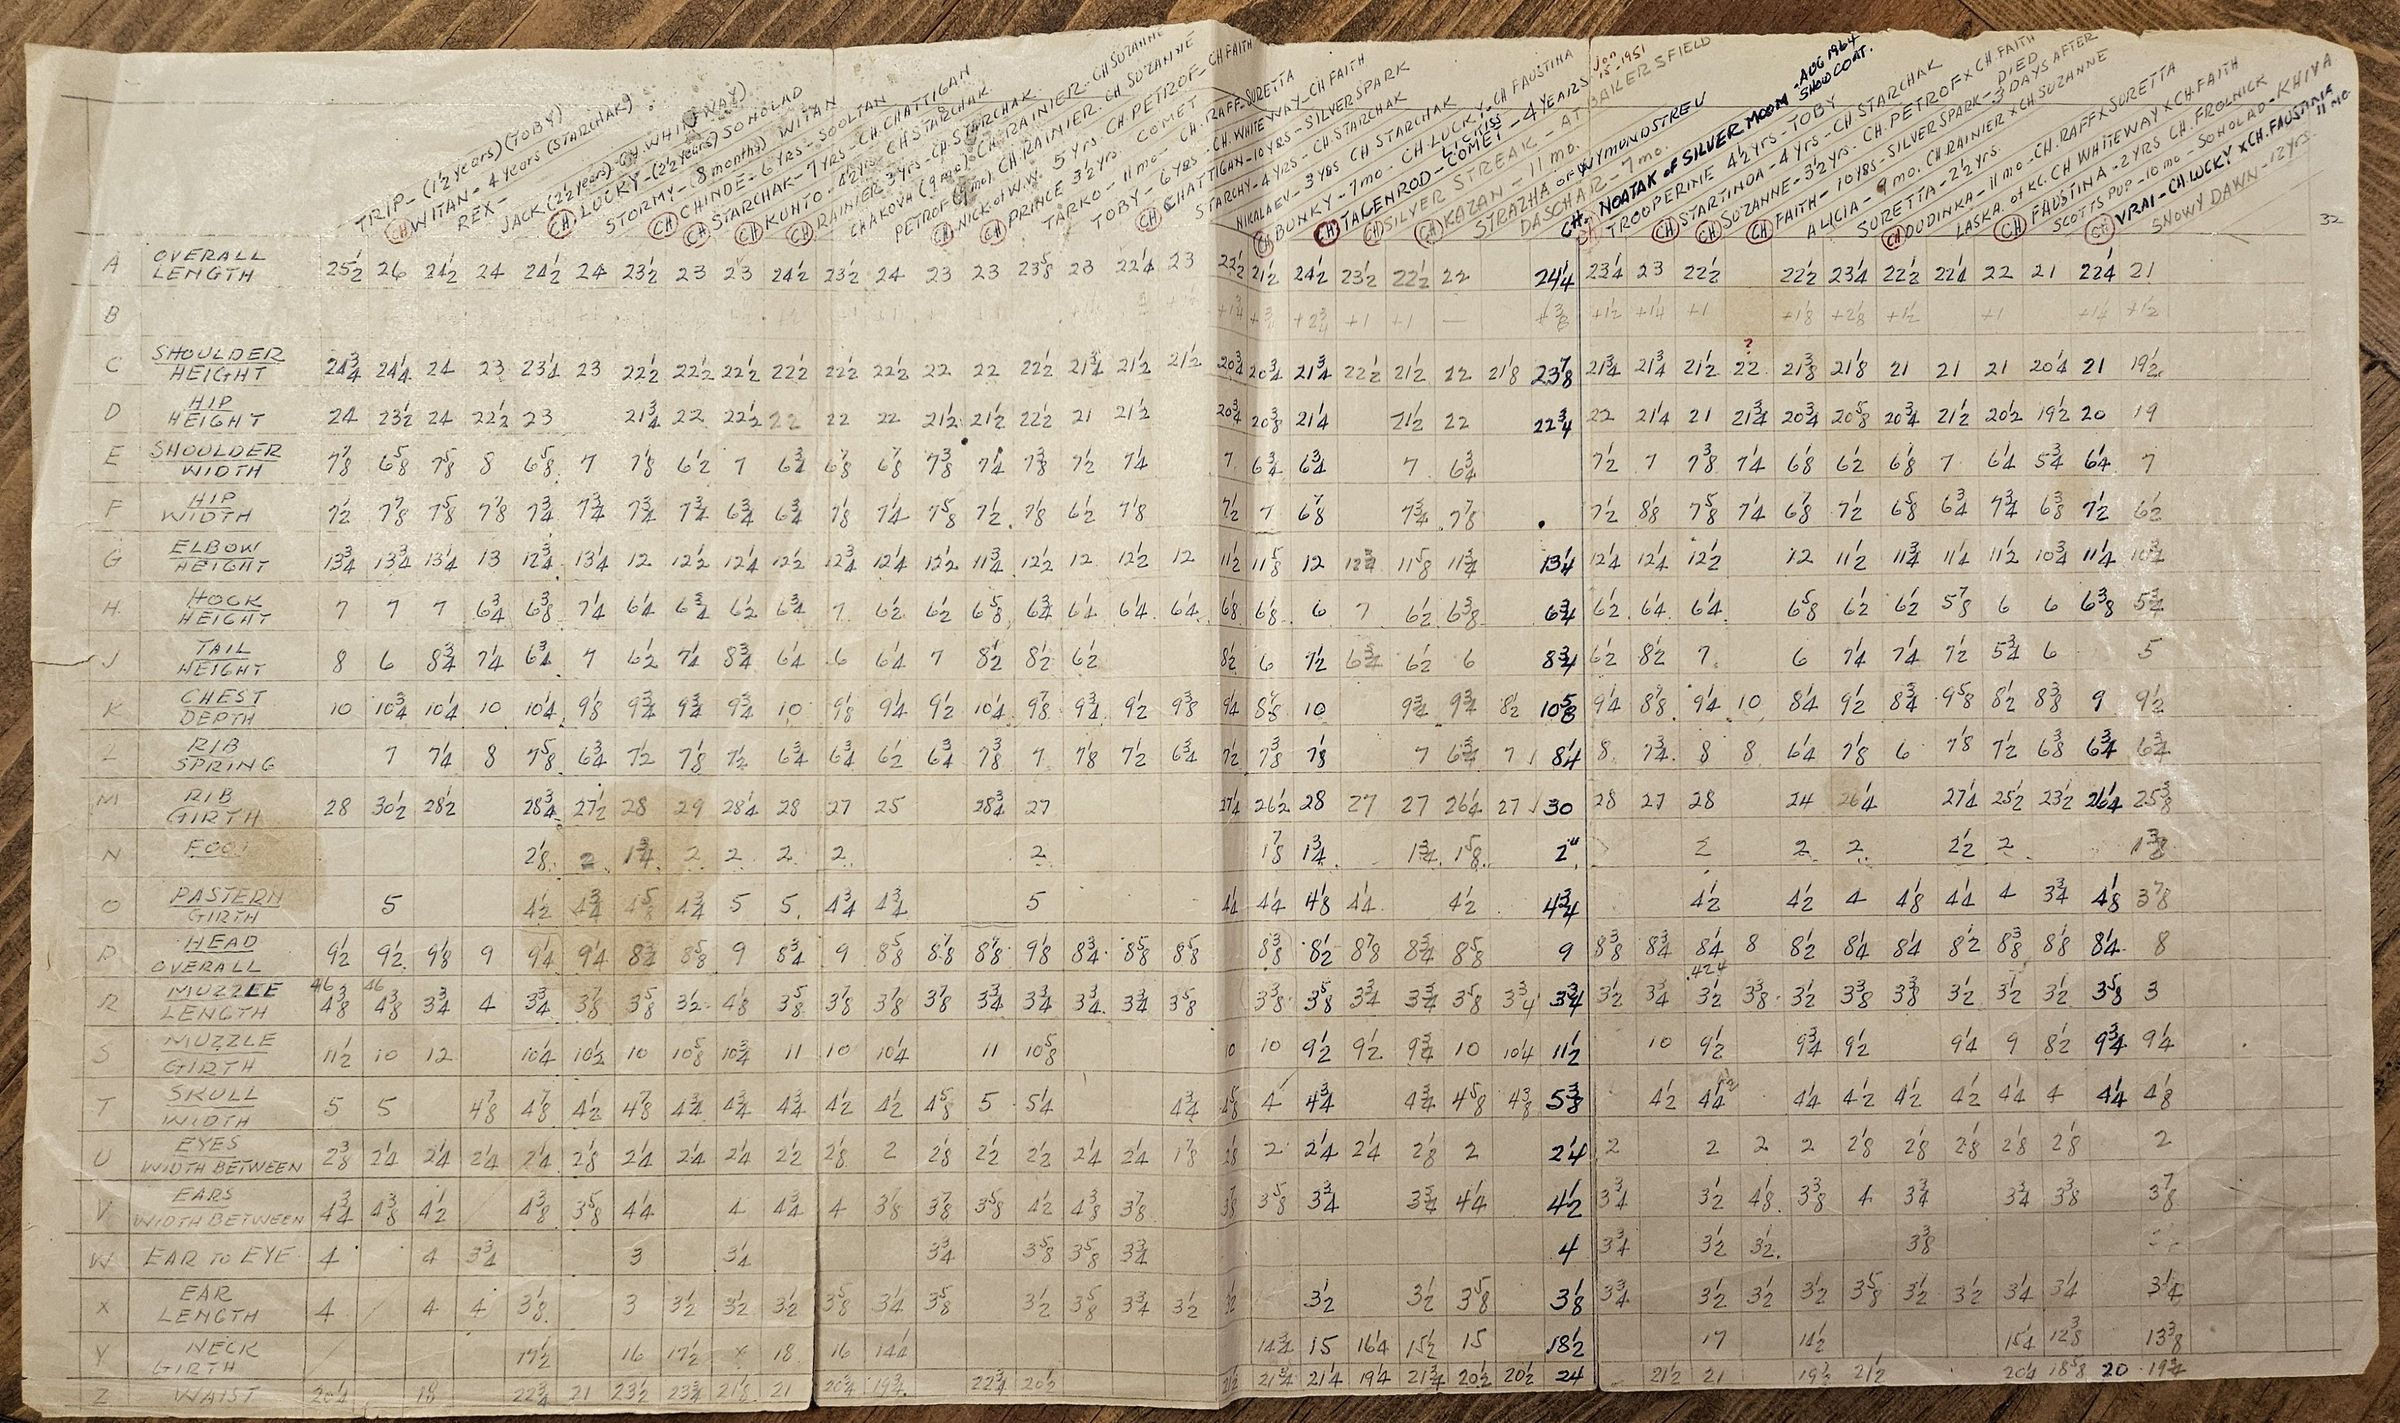 TRIP - (1½ years) (TOBY)
CH WITAN - 4 years (STARCHAK)
REX -
JACK (2½ years) - CH. WHITEWAY)
CH LUCKY - (2½ years) SOHOLAD
STORMY - (8 months) WITAN
CH CHINDE - 6 YRS - SOOLTAN
CH STARCHAK - 7 YRS - CH. CHATTIGAN
CH KUHTO - 4½ YRS - CH STARCHAK
CH RAINIER 3 YRS - CH. STARCHAK
CHAKOVA (9 mo) - CH. RAINIER - CH SUZANNE
PETROF (9 mo) CH. RAINIER. CH SUZANNE
CH NICK OF W.W. 5 YRS. CH. PETROF - CH FAITH
CH PRINCE 3½ YRS COMET
TARKO - 11 MO - CH. RAFF - SURETTA
TOBY - 6 YRS - CH. WHITEWAY - CH FAITH
CH CHATTIGAN - 10 YRS - SILVERSPARK
STARCHY - 4 YRS - CH. STARCHAK
NIKALAEV - 3 YRS CH STARCHAK
CH BUNKY - 7 mo - CH. LUCKY - CH FAUSTINA
CH TAGENROD - COMET - 4 YEARS
CH SILVER STREAK - AT BAKERSFIELD
CH KAZAN - 11 mo.
STRAZHA OF WYMONDSTREV
DASCHAR - 7 mo.
Jan 15 - 1951
CH. NOATAK OF SILVER MOOM AUG 1964 SHOW COAT.
CH TROOPERINE 4½ YRS - TOBY
CH STARTINDA - 4 YRS - CH STARCHAK
CH SUZANNE - 3½ YRS. CH. PETROF X CH. FAITH
CH FAITH - 10 YRS - SILVERSPARK - DIED 3 DAYS AFTER
ALICIA - 9 MO. CH RAINIER X CH SUZANNE
SURETTA - 2½ YRS.
CH DUDINKA - 11 MO - CH. RAFF X SURETTA
LASKA. OF KC. CH WHITEWAY X CH. FAITH
CH FAUSTINA - 2 YRS CH. FROLNICK
SCOTTS PUP - 10 mo - SOHOLAD - KHIVA
CH VRAI - CH. LUCKY X CH. FAUSTINA 11 MO.
SNOWY DAWN - 12 YRS.
32
A OVERALL LENGTH 25½ 26 24½ 24 24½ 24 23½ 23 23 24½ 23½ 24 23 23 23⅝ 23 22¼ 23 22½ 21½ 24½ 23½ 22½ 22 24¼ 23¼ 23 22½ 22½ 23¼ 22½ 22¼ 22 21 22¼ 21
B +¾ +2¾ +1 +1 - +⅜ +½ +¼ +1 +⅛ +2⅛ +½ +1 +¼ +½
C SHOULDER HEIGHT 24¾ 24¼ 24 23 23¼ 23 22½ 22½ 22½ 22½ 22½ 22½ 22 22 22½ 21¾ 21½ 21½ 20¾ 20¾ 21¾ 22½ 21½ 22 21⅛ 23⅞ 21¾ 21¾ 21½ ? 22 21⅜ 21⅛ 21 21 21 20¼ 21 19½
D HIP HEIGHT 24 23½ 24 22½ 23 21¾ 22 22½ 22 22 22 21½ 21½ 22½ 21 21½ 20¾ 20⅜ 21¼ 21½ 22 22¾ 22 21¼ 21 21¾ 20¾ 20⅝ 20¾ 21½ 20½ 19½ 20 19
E SHOULDER WIDTH 7⅞ 6⅝ 7⅝ 8 6⅝ 7 7⅛ 6½ 7 6¾ 6⅞ 6⅞ 7⅜ 7¼ 7⅜ 7½ 7¼ 7 6¾ 6¾ 7 6¾ 7½ 7 7⅜ 7¼ 6⅛ 6½ 6⅛ 7 6¼ 5¾ 6¼ 7
F HIP WIDTH 7½ 7⅞ 7⅝ 7⅞ 7¾ 7¾ 7¾ 7¾ 6¾ 6¾ 7⅛ 7¼ 7⅝ 7½ 7⅛ 6½ 7⅛ 7½ 7 6⅞ 7¾ 7⅞ 7½ 8⅛ 7⅝ 7¼ 6⅞ 7½ 6⅝ 6¾ 7¾ 6⅜ 7½ 6½
G ELBOW HEIGHT 13¾ 13¾ 13¼ 13 12¾ 13¼ 12 12½ 12¼ 12½ 12¾ 12¼ 12½ 11¾ 12½ 12 12½ 12 11½ 11⅝ 12 12¾ 11⅝ 11¾ 13¼ 12¼ 12¼ 12½ 12 11½ 11¾ 11¼ 11½ 10¾ 11¼ 10¾
H HOCK HEIGHT 7 7 7 6¾ 6⅜ 7¼ 6¼ 6¾ 6½ 6¾ 7 6½ 6½ 6⅝ 6¾ 6¼ 6¼ 6¼ 6⅛ 6⅛ 6 7 6½ 6⅜ 6¾ 6½ 6¼ 6¼ 6⅝ 6½ 6½ 5⅞ 6 6 6⅜ 5¾
J TAIL HEIGHT 8 6 8¾ 7¼ 6¾ 7 6½ 7¼ 8¾ 6¼ 6 6¼ 7 8½ 8½ 6½ 8½ 6 7½ 6¾ 6½ 6 8¾ 6½ 8½ 7 6 7¼ 7¼ 7½ 5¾ 6 5
K CHEST DEPTH 10 10¾ 10¼ 10 10¼ 9⅛ 9¾ 9¾ 9¾ 10 9⅛ 9¼ 9½ 10¼ 9⅞ 9¾ 9½ 9⅜ 9¼ 8⅞ 10 9¾ 9¾ 8½ 10⅝ 9¼ 8⅞ 9¼ 10 8¼ 9½ 8¾ 9⅝ 8½ 8⅜ 9 9½
L RIB SPRING 7 7¼ 8 7⅝ 6¾ 7½ 7⅛ 7½ 6¾ 6¾ 6½ 6¾ 7⅜ 7 7⅛ 7½ 6¾ 7½ 7⅜ 7⅛ 7 6¾ 7 8¼ 8 7¾ 8 8 6¼ 7⅛ 6 7⅛ 7½ 6⅜ 6¾ 6¾
M RIB GIRTH 28 30½ 28½ 28¾ 27½ 28 29 28¼ 28 27 25 28¾ 27 27¼ 26½ 28 27 27 26¼ 27 30 28 27 28 24 26¼ 27¼ 25½ 23½ 26¼ 25⅜
N FOOT 2⅛ 2 1¾ 2 2 2 2 2 1⅞ 1¾ 1¾ 1⅝ 2" 2 2 2 2½ 2 1⅜
O PASTERN GIRTH 5 4½ 4¾ 4⅝ 4¾ 5 5 4¾ 4¾ 5 4¼ 4¼ 4⅛ 4¼ 4½ 4¾ 4½ 4½ 4 4⅛ 4¼ 4 3¾ 4⅛ 3⅞
P HEAD OVERALL 9½ 9½ 9⅛ 9 9¼ 9¼ 8¾ 8⅝ 9 8¾ 9 8⅝ 8⅞ 8⅞ 9⅛ 8¾ 8⅝ 8⅝ 8⅜ 8½ 8⅞ 8¾ 8⅝ 9 8⅜ 8¾ 8¼ 8 8½ 8¼ 8¼ 8½ 8⅜ 8⅛ 8¼ 8
R MUZZLE LENGTH 46 4⅜ 46 4⅜ 3¾ 4 3¾ 3⅞ 3⅝ 3½ 4⅛ 3⅝ 3⅞ 3⅞ 3⅞ 3¾ 3¾ 3¾ 3¾ 3⅝ 3⅜ 3⅝ 3¾ 3¾ 3⅝ 3¾ 3¾ 3½ 3¾ .424 3½ 3⅜ 3½ 3⅜ 3⅜ 3½ 3½ 3½ 3⅝ 3
S MUZZLE GIRTH 11½ 10 12 10¼ 10½ 10 10⅝ 10¾ 11 10 10¼ 11 10⅝ 10 10 9½ 9½ 9¾ 10 10¼ 11½ 10 9½ 9¾ 9½ 9¼ 9 8½ 9¾ 9¼
T SKULL WIDTH 5 5 4⅞ 4⅞ 4½ 4⅞ 4¾ 4¾ 4¾ 4½ 4½ 4⅝ 5 5¼ 4¾ 4⅝ 4 4¾ 4¾ 4⅝ 4⅜ 5⅜ 4½ 4¼ 4¼ 4½ 4½ 4½ 4¼ 4 4¼ 4⅛
U EYES WIDTH BETWEEN 2⅜ 2¼ 2¼ 2¼ 2¼ 2⅛ 2¼ 2¼ 2¼ 2½ 2⅛ 2 2⅛ 2½ 2½ 2¼ 2¼ 1⅞ 2⅛ 2 2¼ 2¼ 2⅛ 2 2¼ 2 2 2 2 2⅛ 2⅛ 2⅛ 2⅛ 2⅛ 2
V EARS WIDTH BETWEEN 4¾ 4⅜ 4½ 4⅜ 3⅝ 4¼ 4 4¾ 4 3⅞ 3⅞ 3⅝ 4½ 4⅜ 3⅞ 3⅞ 3⅝ 3¾ 3¾ 4¼ 4½ 3¾ 3½ 4⅛ 3⅜ 4 3¾ 3¾ 3⅜ 3⅞
W EAR TO EYE 4 4 3¾ 3 3¼ 3¾ 3⅝ 3⅝ 3¾ 4 3¾ 3½ 3½ 3⅜
X EAR LENGTH 4 4 4 3⅛ 3 3½ 3½ 3½ 3⅝ 3¼ 3⅝ 3½ 3⅝ 3¾ 3½ 3½ 3½ 3½ 3⅝ 3⅛ 3¾ 3½ 3½ 3½ 3⅝ 3½ 3½ 3¼ 3¼ 3¼
Y NECK GIRTH 17½ 16 17½ x 18 16 14¼ 14¾ 15 16¼ 15½ 15 18½ 17 14½ 15¼ 12⅜ 13⅜
Z WAIST 20¼ 18 22¾ 21 23½ 23¾ 21⅛ 21 20¾ 19¾ 22¾ 20½ 21½ 21¾ 21¼ 19¼ 21¾ 20½ 20½ 24 21½ 21 19½ 21½ 20¼ 18⅝ 20 19¾